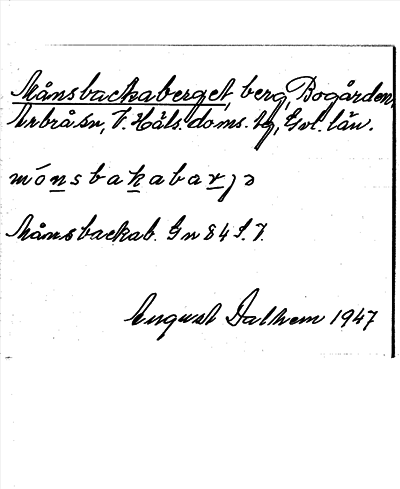 Månsbackaberget, berg, Bogården,
Arbrå sn, V. Häls. doms. tg, Gvl. län.
mónsbakabar
Månsbackab. Gn 84 S.7.
August Dalhem 1947